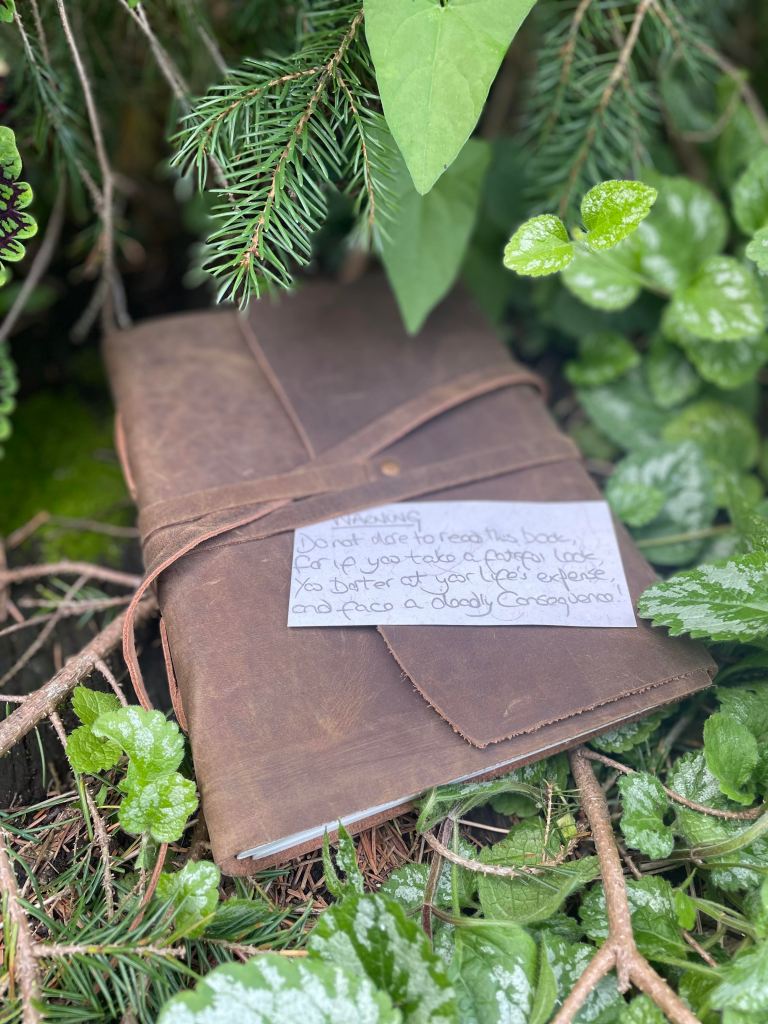 WARNING
Do not dare to read this book,
For if you take a look,
You Barter at your life's expense,
and face a deadly Consequence!